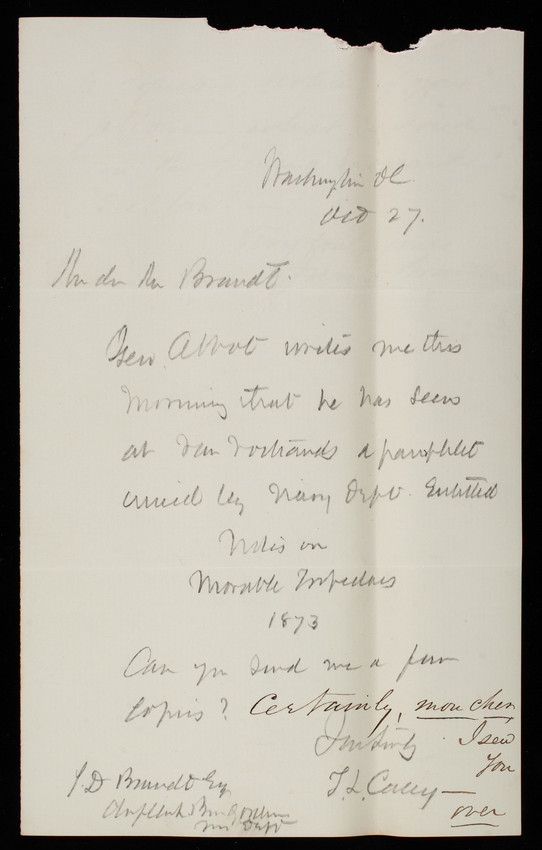 Washington DC
Oct 27.
My dear Mr Brandt.
Gen. Abbot writes me this
morning that he has seen
at Van Nostrands a pamphlet
issued by Navy Dept. Entitled
Notes on
Movable Torpedoes
1873
Can you send me a few
copies? Certainly, mon cher,
I send
you
T. L. Casey
over
J D Brandt Esq
Chf Clerk Bur Ordnance
Navy Dept